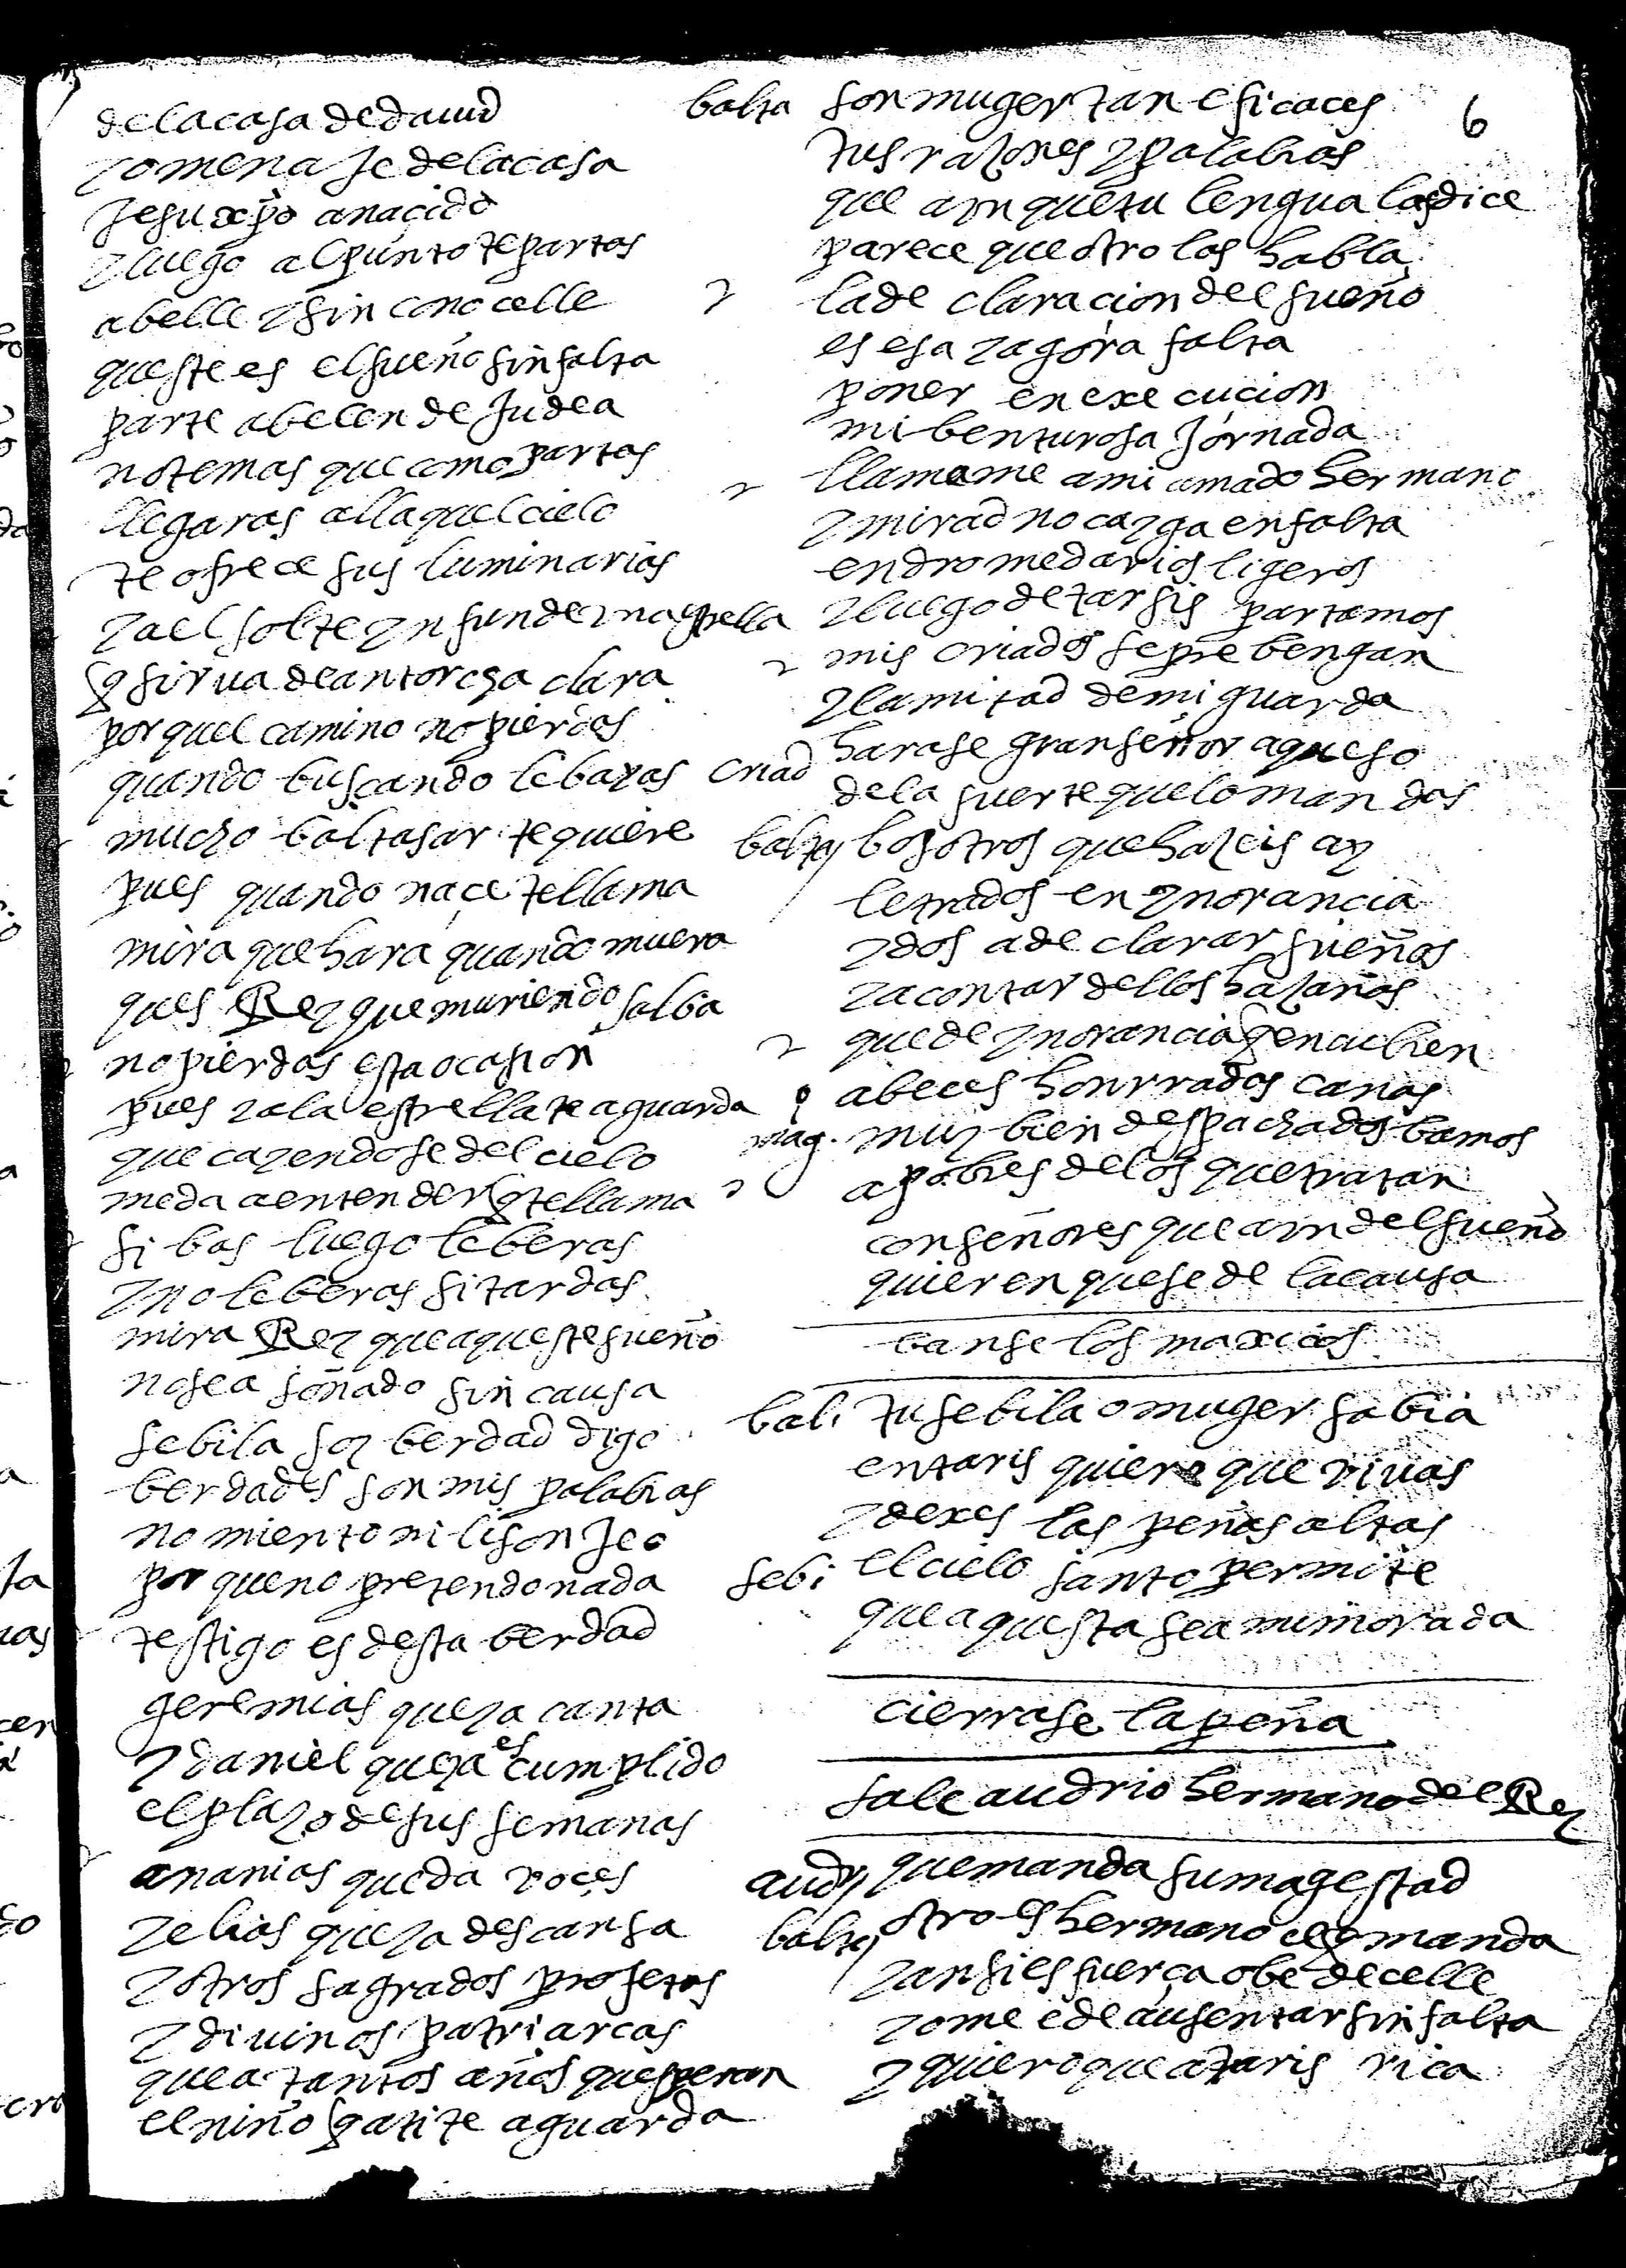 de la casa de dauid
y omenaje de la casa
jesuxpo a naçido
y luego al punto te partas
a belle y sin conocelle
queste es el sueño sin falta
parte a belen de judea
no temas que como partas
llegaras alla quel cielo
te ofrece sus luminarias
ya el sol te ynfunde una estrella
q sirua de antorcha clara
porquel camino no pierdas
quando buscando le bayas
mucho baltasar te quiere
pues quando naçe te llama
mira que hara quando muera
ques Rey que muriendo salba
no pierdas esta ocasion
pues ya la estrella te aguarda
que cayendose del cielo
me da a entender q te llama
si bas luego le beras
y no le beras si tardas
mira Rey que aqueste sueño
no sea soñado sin causa
sebila soy berdad digo
berdades son mis palabras
no miento ni lisonjeo
porque no pretendo nada
testigo es desta berdad
geremias que ya canta
y daniel que ya es cumplido
el plazo de sus semanas
ananias que da voçes
y elias que ya descansa
y otros sagrados profetas
y diuinos patriarcas
que a tantos años questperan
el niño q a ti te aguarda
6
balta son muger tan eficaces
tus razones y palabras
que aunque tu lengua las dice
parece que otro las habla
la declaracion del sueño
es esa y agora falta
poner en execucion
mi benturosa jornada
llamame a mi amado hermano
y mirad no cayga en falta
en dromedarios ligeros
y luego de tarsis partamos
mis criados se prebengan
y la mitad de mi guarda
criad harase gran señor aqueso
de la suerte que lo mandas
balta bosotros que hazeis ay
letrados en ynorancia
ydos a declarar sueños
y a contar dellos hazañas
que de ynorancia q encubren
a beces honrrados canas
mag. muy bien despachados bamos
a pobres de los que tratan
con señores que aun del sueño
quieren que se de la causa
banse los maxicos
bal. tu sebila o muger sabia
en taris quiero que viuas
y dexes las peñas altas
sebi el cielo santo permite
que aquesta sea mi morada
cierrase la peña
sale audrio hermano del Rey
audr que manda su magestad
balta otro es hermano el q manda
y ansi es fuerça obedecelle
yo me e de ausentar sin falta
y quiero que a taris rica